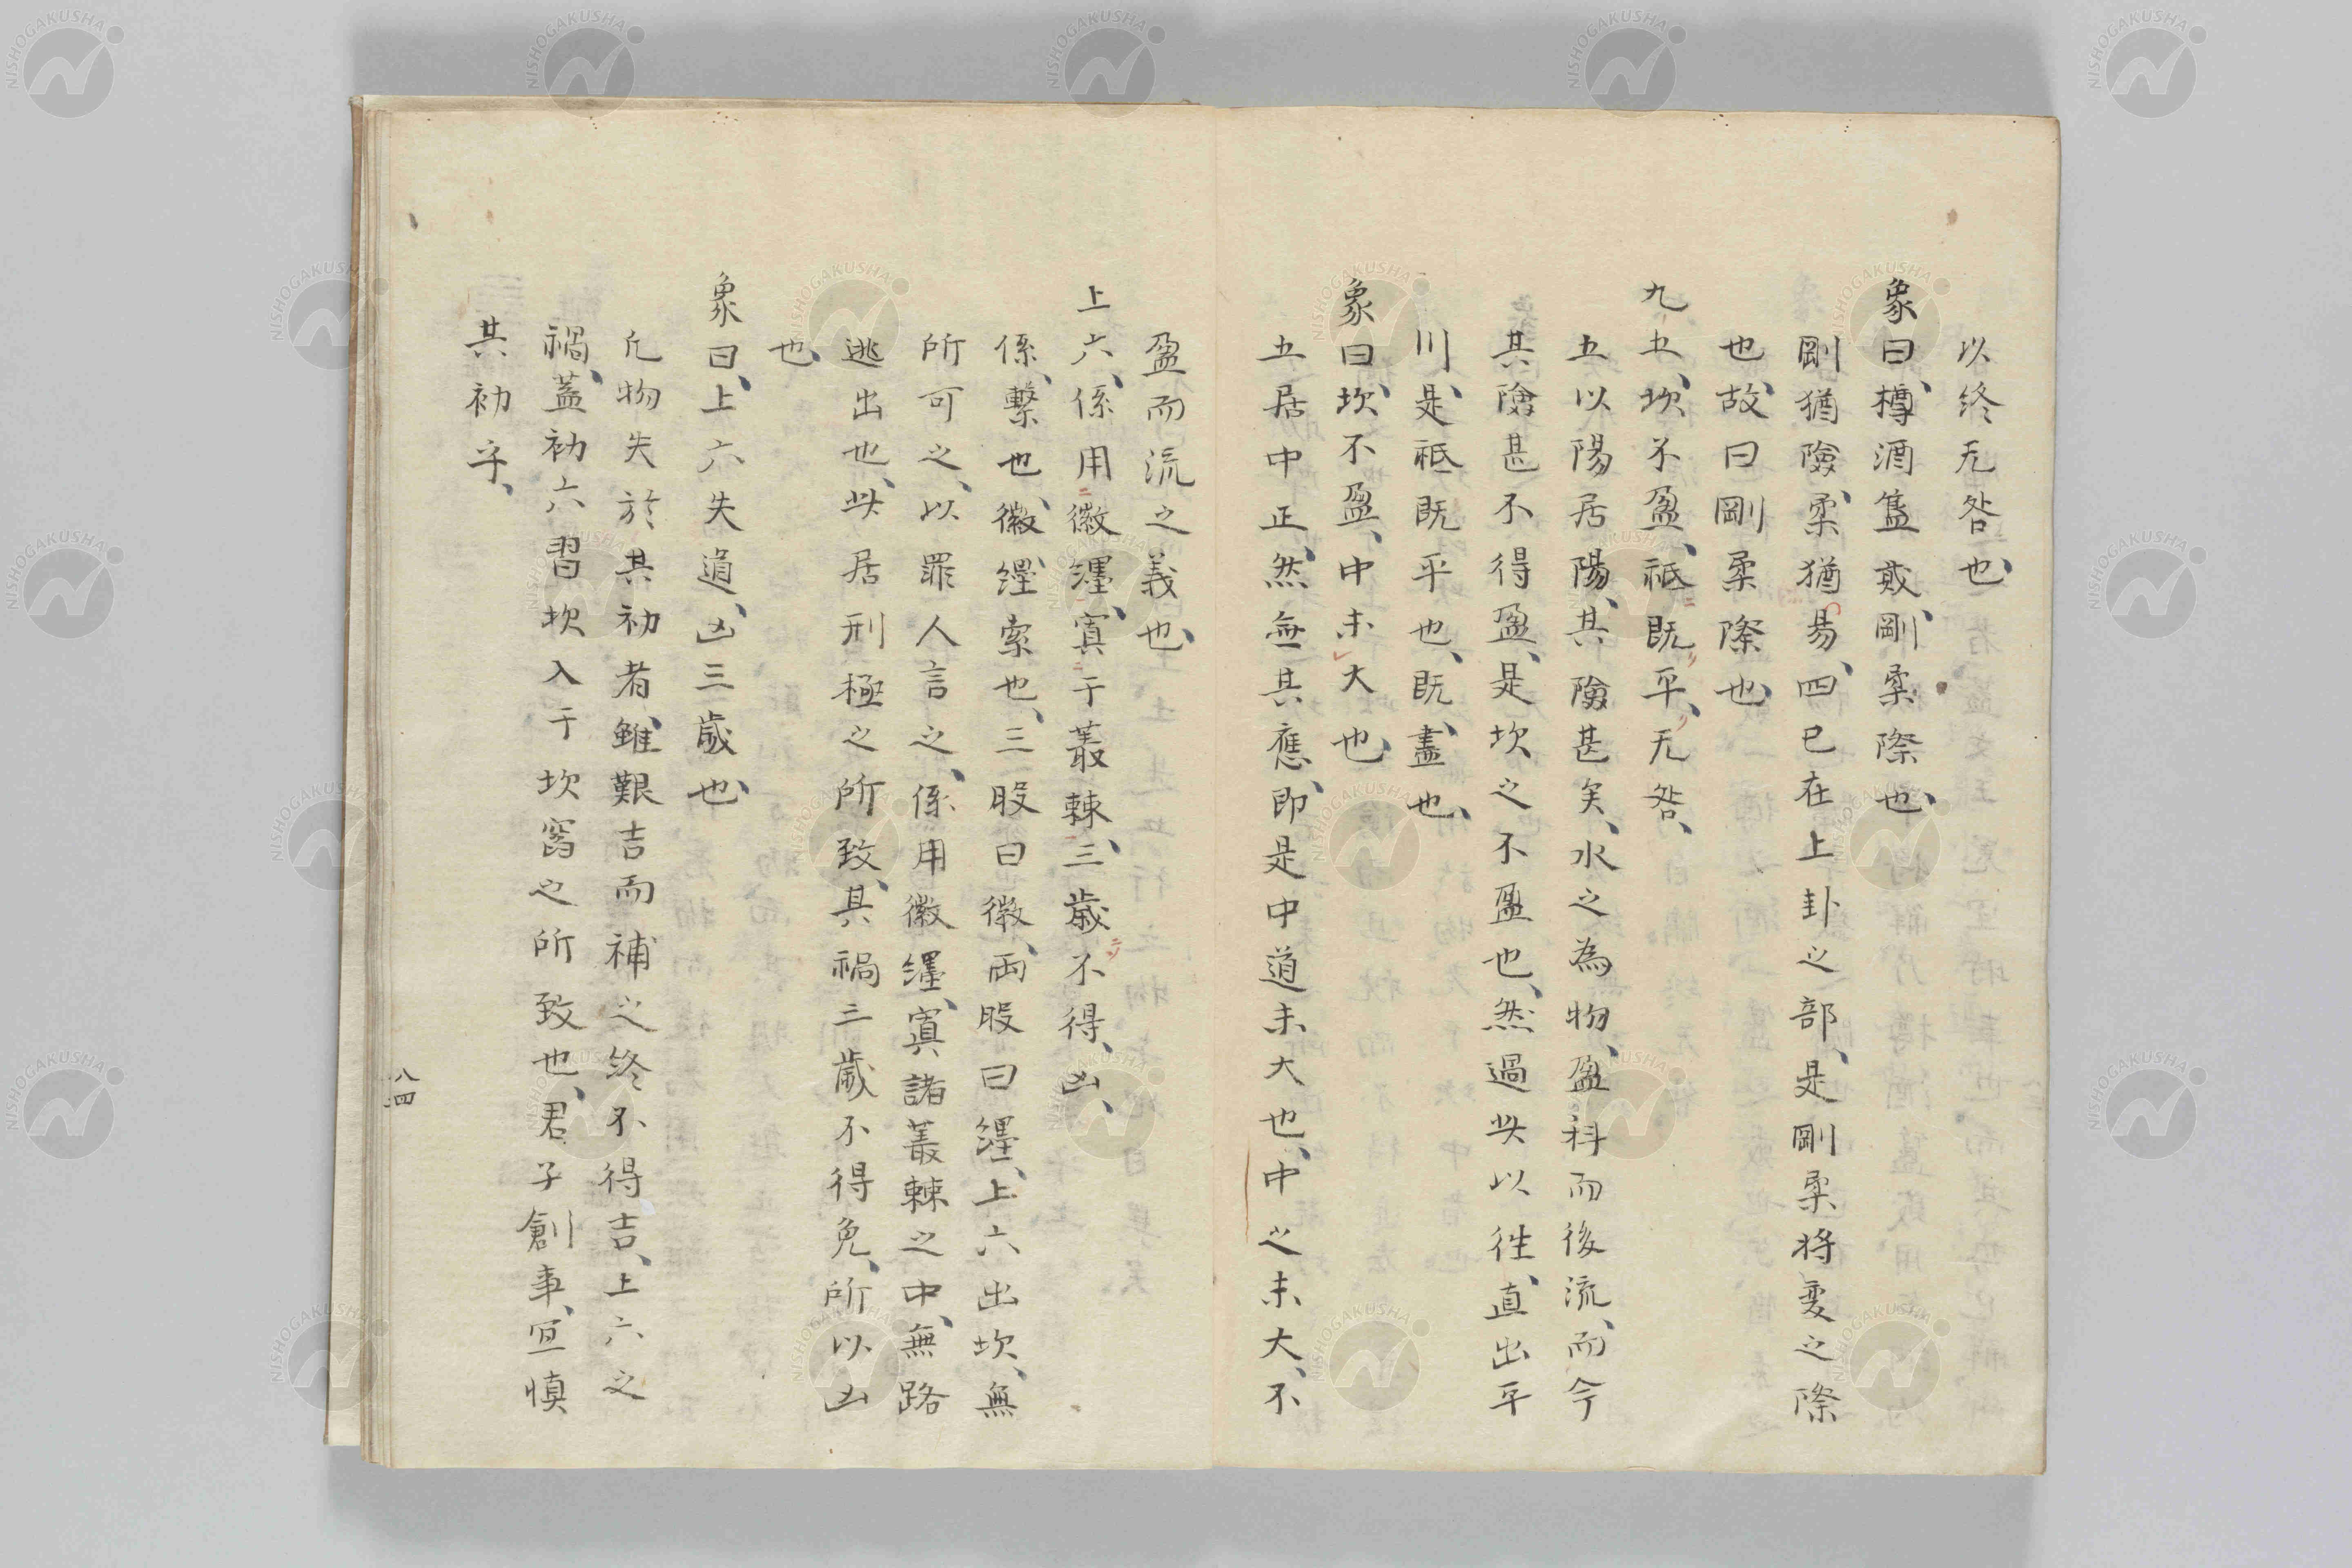 以終无咎也、
象曰、樽酒簋貳、剛柔際也、
剛猶險、柔猶易、四已在上卦之部、是剛柔将変之際
也、故曰剛柔際也、
九五、坎不盈、祗既平、无咎、
五以陽居陽、其險甚矣、水之為物、盈科而後流、而今
其險甚不得盈、是坎之不盈也、然過此以徃、直出平
川、是祗既平也、既盡也、
象曰、坎不盈、中未大也、
五居中正、然無其應、即是中道未大也、中之未大、不
盈而流之義也、
上六、係用徽纆、寘于叢棘、三歲不得、凶、
係、繫也、徽纆、索也、三股曰徽、兩股曰纆、上六出坎、無
所可之、以罪人言之、係用徽纆、寘諸叢棘之中、無路
逃出也、此居刑極之所致、其禍三歲不得免、所以凶
也、
象曰、上六失道、凶三歲也、
凡物失於其初者、雖艱吉而補之終不得吉、上六之
禍、蓋初六習坎入于坎窞之所致也、君子創事、宜慎
其初乎、
八四
NISHOGAKUSHA